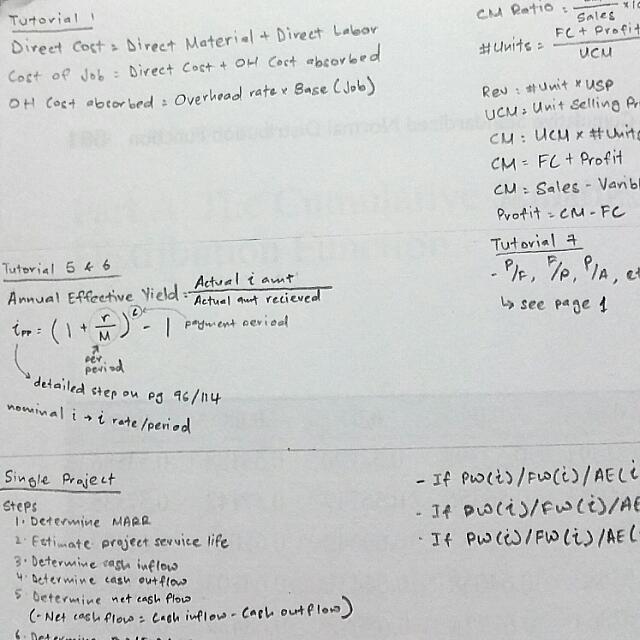 Tutorial 1
Direct Cost = Direct Material + Direct Labor
Cost of Job = Direct Cost + OH Cost absorbed
OH Cost absorbed = Overhead rate x Base (Job)
CM Ratio =
Sales
#Units = FC + Profit
UCM
Rev = #unit * USP
UCM = Unit Selling
CM = UCM x #Units
CM = FC + Profit
CM = Sales -
Profit = CM - FC
Tutorial 5 & 6
Annual Effective Yield = Actual i amt
Actual amt recieved
ipp = (1 + r/M)^c - 1 payment period
per
period
detailed step on pg 96/114
nominal i → i rate/period
Tutorial 7
- P/F, F/P, P/A,
↳ see page 1
Single Project
Steps
1. Determine MARR
2. Estimate project service life
3. Determine cash inflow
4. Determine cash outflow
5. Determine net cash flow
(- Net cash flow = Cash inflow - Cash outflow)
6.
- If PW(i)/FW(i)/AE(i
- If PW(i)/FW(i)/AE
- If PW(i)/FW(i)/AE(